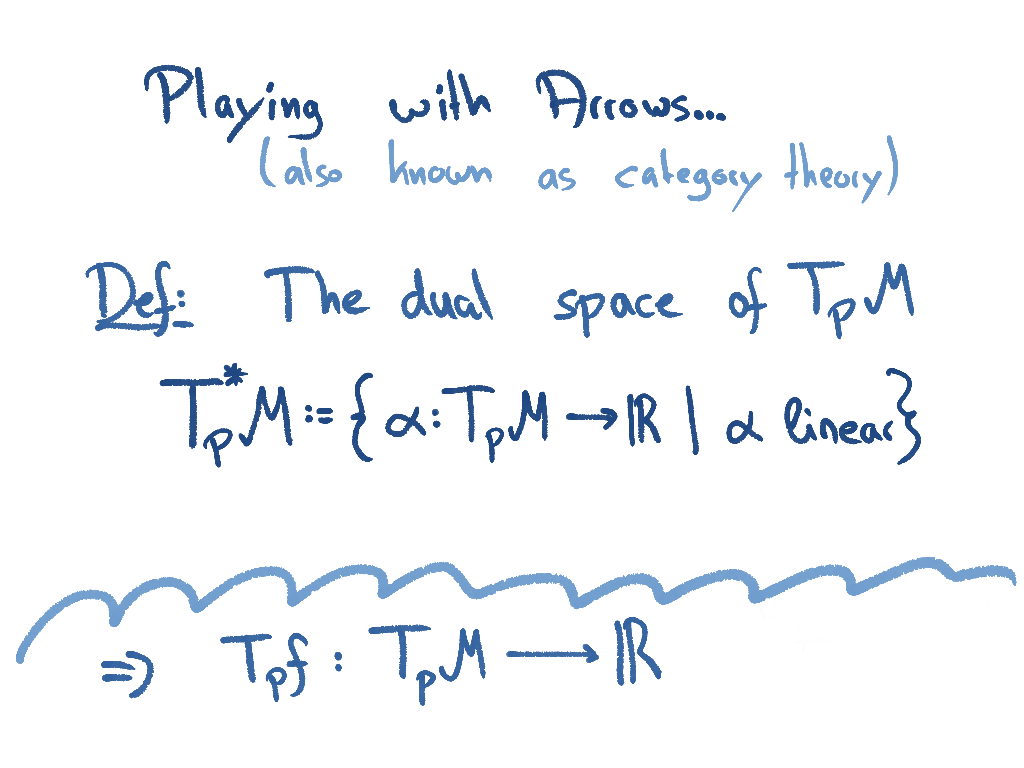 Playing with Arrows...
(also known as category theory)
Def: The dual space of TₚM
Tₚ*M := { α: TₚM → ℝ | α linear}
⇒ Tₚf : TₚM ⟶ ℝ